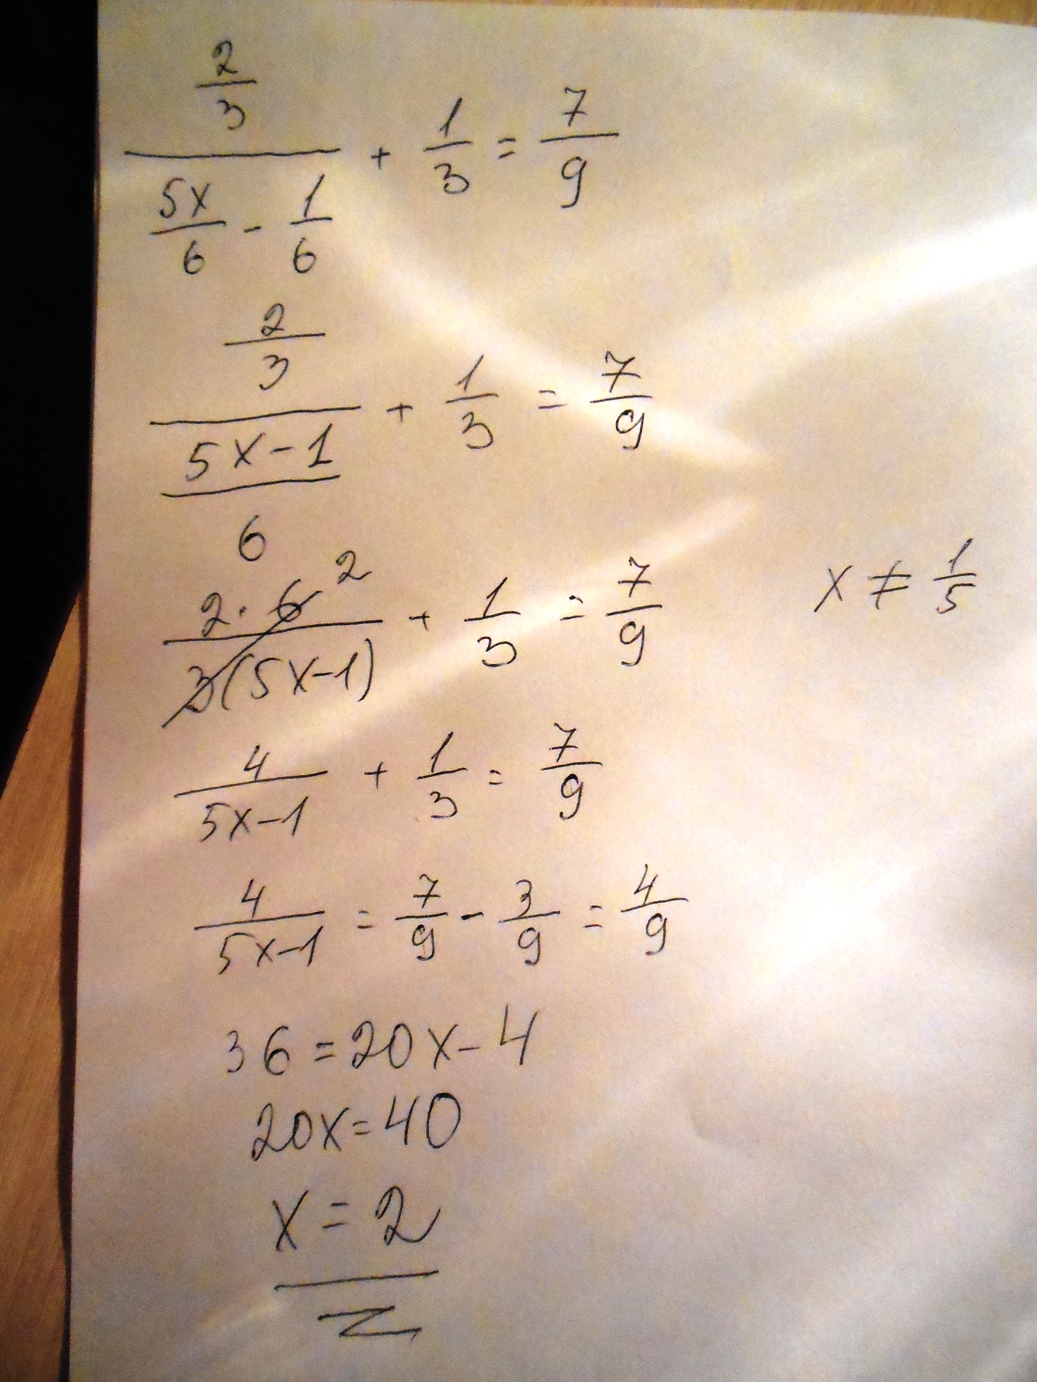 2/3 / (5x/6 - 1/6) + 1/3 = 7/9
2/3 / ((5x-1)/6) + 1/3 = 7/9
2·6 2 / 3(5x-1) + 1/3 = 7/9 x ≠ 1/5
4/(5x-1) + 1/3 = 7/9
4/(5x-1) = 7/9 - 3/9 = 4/9
36 = 20x - 4
20x = 40
x = 2